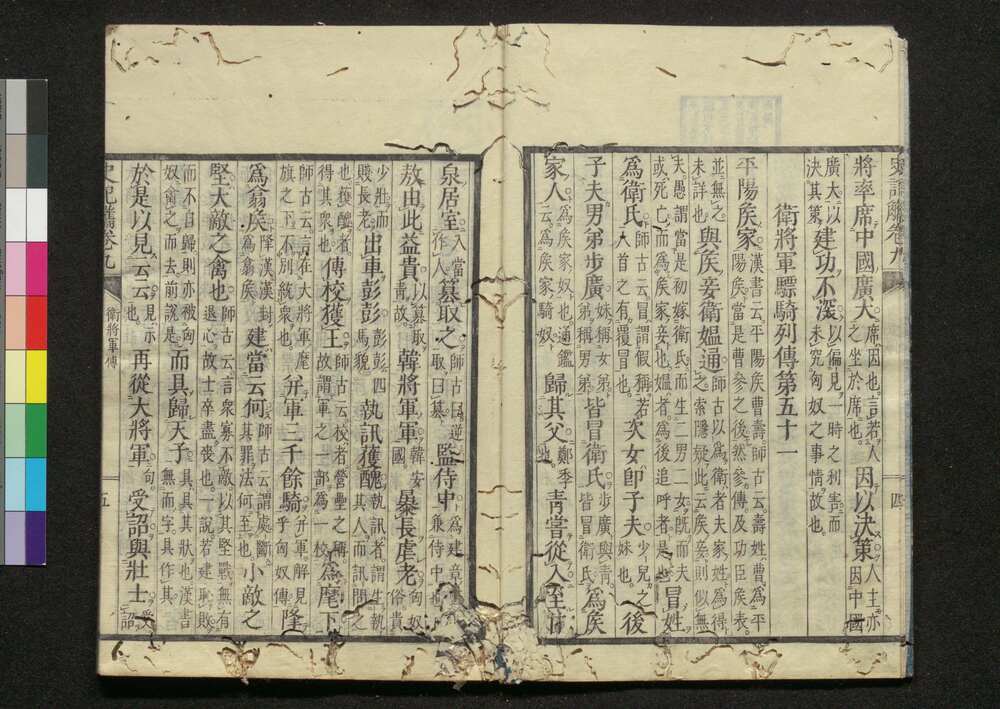 史記觽卷九
將率席中國廣大席因也言若人之坐於席也因以決策人主亦因中國
廣大以建功不深以偏見一時之利害而決其策未究匈奴之事情故也
衛將軍驃騎列傳第五十一
平陽矦家漢書云平陽矦曹壽師古云壽姓曹爲平陽矦當是曹參之後然參傳及功臣矦表
並無之未詳也與矦妾衛媼通師古以爲衛者夫家姓爲得之索隱疑此云矦妾則似無
夫愚謂當是初嫁衛氏而生二男二女旣而夫或死亡而爲矦家妾也媼者爲後追呼者是也冒姓
爲衛氏師古云冒謂假稱若人首之有覆冒也次女卽子夫少兒之妹也後
子夫男弟步廣妹稱女弟弟稱男弟皆冒衛氏步廣與靑皆冒衛氏爲矦
家人爲矦家奴也通鑑云爲矦家騎奴歸其父鄭季也靑嘗從入至甘
四
泉居室入當作人簒取之師古曰逆取曰簒監侍中爲建章監兼侍中也
敖由此益貴以簒取靑故韓將軍軍韓安國暴長虐老匈奴俗貴
少壯而賤長老出車彭彭彭彭四馬貌執訊獲醜執訊者謂生執其人而訊問之
也獲醜者得其衆也傳校獲王師古云校者營壘之稱故謂軍之一部爲一校爲麾下
師古云言在大將軍麾旗之下不別統衆也幷軍三千餘騎幷軍解見乎匈奴傳降
爲翕矦降漢漢封爲翕矦建當云何師古云謂處斷其罪法何至也小敵之
堅大敵之禽也師古云言衆寡不敵以其堅戰無有退心故士卒盡喪也一說若建恥敗
而不自歸則亦被匈奴禽之而去前說是而具歸天子具其其狀也漢書無而字具作其
於是以見云云見示也再從大將軍句受詔與壯士受詔
史記觽卷九
衛將軍傳
五